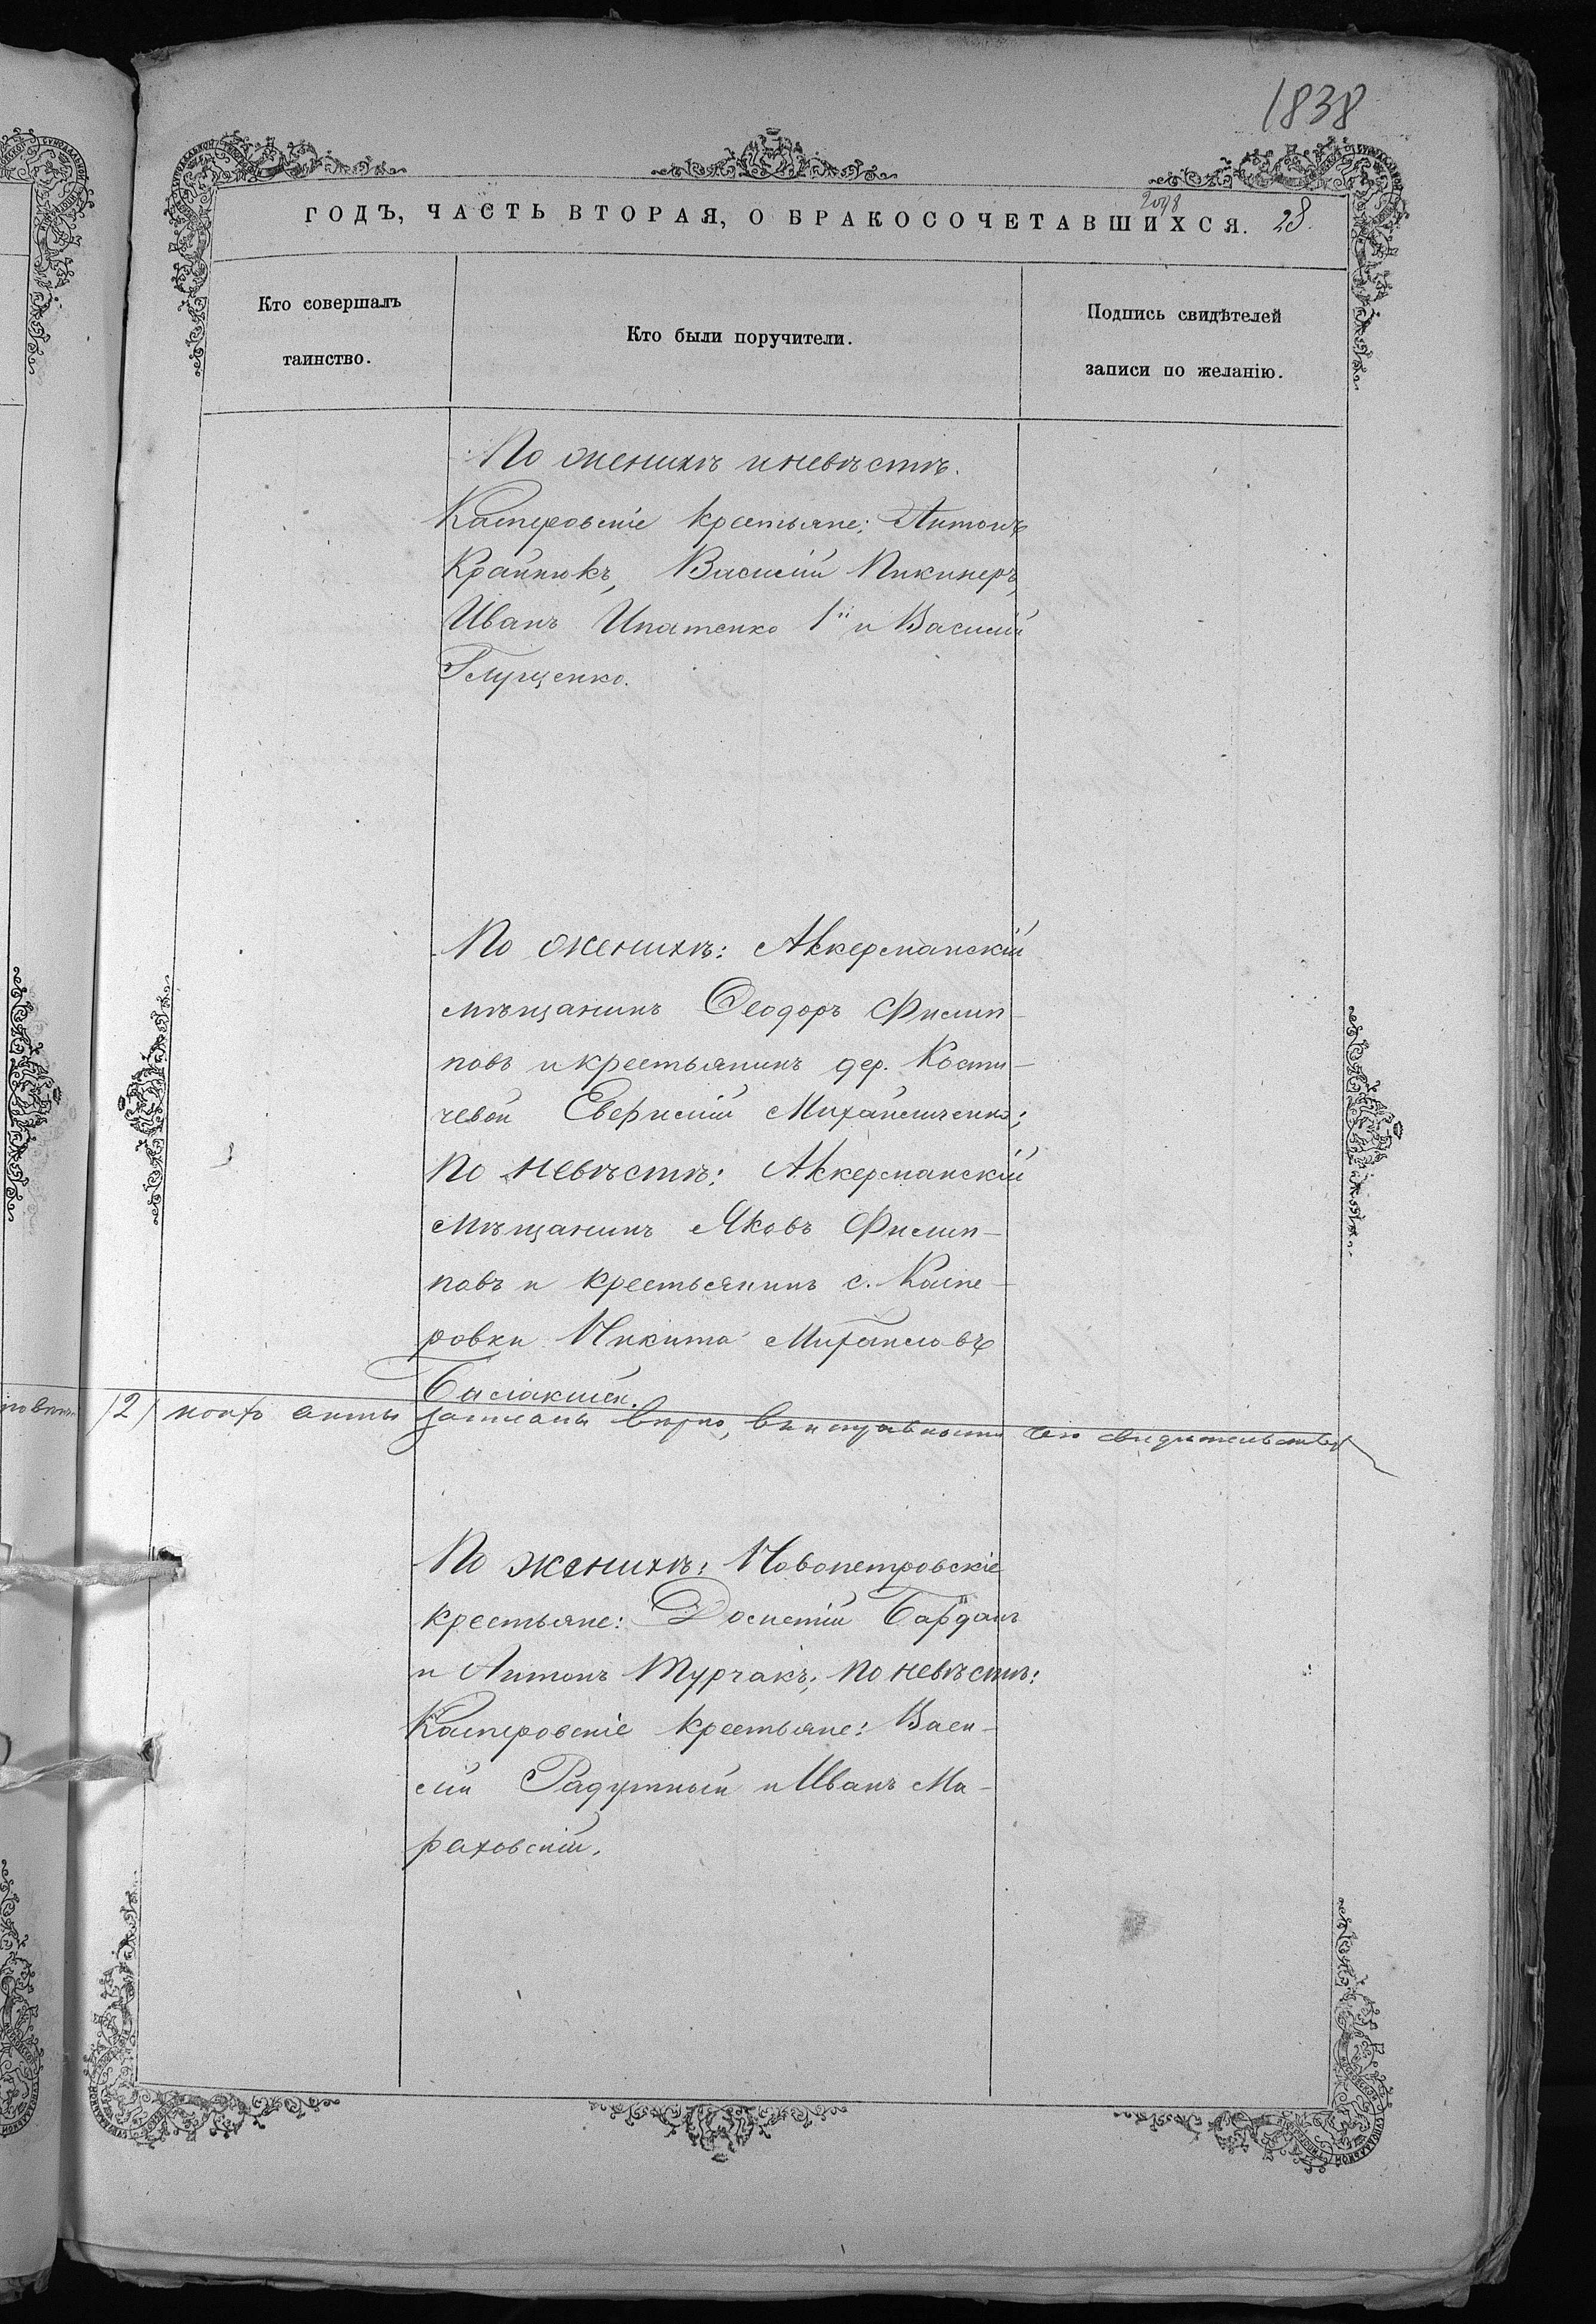 1838
2098
ГОДЪ, ЧАСТЬ ВТОРАЯ, О БРАКОСОЧЕТАВШИХСЯ. 28.
Кто совершалъ
таинство.
Кто были поручители.
Подпись свидѣтелей
записи по желанію.
По женихѣ и невѣстѣ.
Касперовскіе крестьяне: Антонъ
Крайнюкъ, Василій Пикинеръ,
Иванъ Ипатенко 1й и Василій
Глущенко.
По женихѣ: Аккерманскій
мѣщанинъ Ѳеодоръ Филип-
повъ и крестьянинъ дер. Кости-
чевой Михайличенко;
По невѣстѣ: Аккерманскій
мѣщанинъ Яковъ Филип-
повъ и крестьянинъ с. Каспе-
ровки Никита Михайловъ
12 акты записаны вѣрно, въ исправности чего свидѣтельствуетъ
По женихѣ: Новопетровскіе
крестьяне: Досиѳій Барданъ
и Антонъ Турчакъ; по невѣстѣ:
Касперовскіе крестьяне: Васи-
лій Радутный и Иванъ Ма-
раховскій.